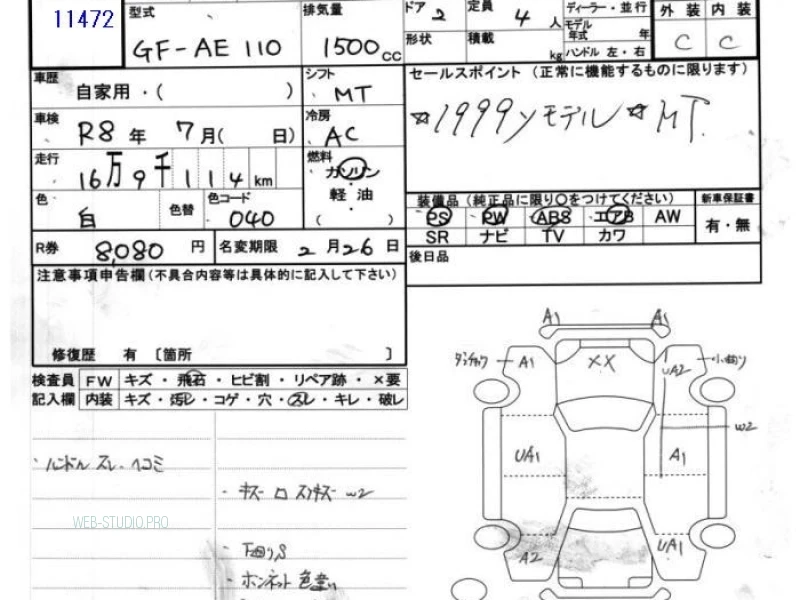 11472
型式
GF-AE 110
排気量
1500cc
ドア 2
定員 4人
ディーラー・並行
モデル年式 年
ハンドル 左・右
形状
積載 kg
外装 内装
C C
車歴
自家用・( )
シフト
MT
セールスポイント (正常に機能するものに限ります)
☆1999yモデル☆MT.
車検
R8年 7月( 日)
冷房
AC
走行
16万9千114km
燃料
ガソリン
軽・油
( )
色
白
色替
色コード
040
装備品 (純正品に限り○をつけてください)
PS PW ABS エアB AW
SR ナビ TV カワ
新車保証書
有・無
R券 8,080円
名変期限 2月26日
後日品
注意事項申告欄(不具合内容等は具体的に記入して下さい)
修復歴 有 〔箇所 〕
検査員記入欄
FW キズ・飛石・ヒビ割・リペア跡・×要
内装 キズ・汚レ・コゲ・穴・スレ・キレ・破レ
・ハンドル スレ・ヘコミ
WEB-STUDIO.PRO
・下回りS
・ボンネット 色違い
A1 A1
A1 XX UA2
W2
UA1 A1
A2 UA1